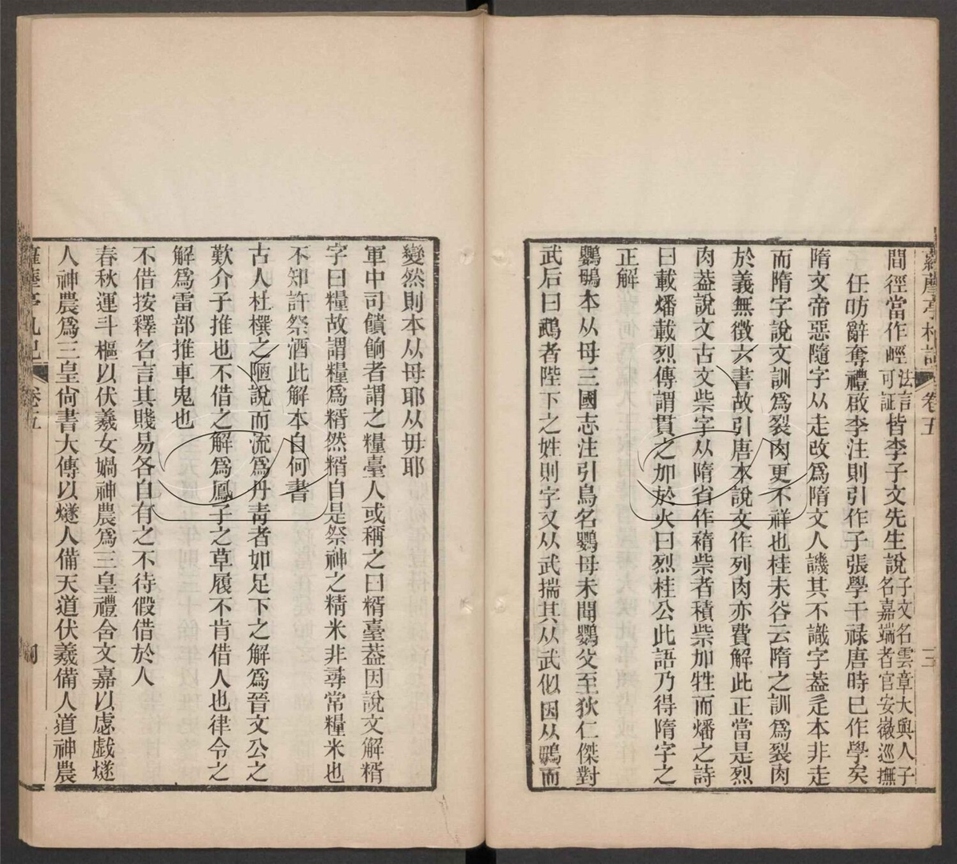 蘿藦亭札記 卷五 三
間徑當作𡷨法言可証皆李子文先生說子文名雲章大興人子名嘉端者官安徽巡撫
任昉辭奪禮啟李注則引作子張學干祿唐時已作學矣
隋文帝惡隨字从走改爲隋文人譏其不識字葢辵本非走
而隋字說文訓爲裂肉更不祥也桂未谷云隋之訓爲裂肉
於義無徵六書故引唐本說文作列肉亦費解此正當是烈
肉葢說文古文祡字从隋省作䄬祡者積祡加牲而燔之詩
曰載燔載烈傳謂貫之加於火曰烈桂公此語乃得隋字之
正解
鸚䳇本从母三國志注引鳥名鸚母未聞鸚父至狄仁傑對
武后曰鵡者陛下之姓則字又从武揣其从武似因从鴟而
變然則本从母耶从毋耶
軍中司饋餉者謂之糧臺人或稱之曰糈臺葢因說文解糈
字曰糧故謂糧爲糈然糈自是祭神之精米非尋常糧米也
不知許祭酒此解本自何書
古人杜撰之陋說而流爲丹青者如足下之解爲晉文公之
歎介子推也不借之解爲鳳子之草履不肯借人也律令之
解爲雷部推車鬼也
不借按釋名言其賤易各自有之不待假借於人
春秋運斗樞以伏羲女媧神農爲三皇禮含文嘉以虙戲燧
人神農爲三皇尙書大傳以燧人備天道伏羲備人道神農
蘿藦亭札記 卷五